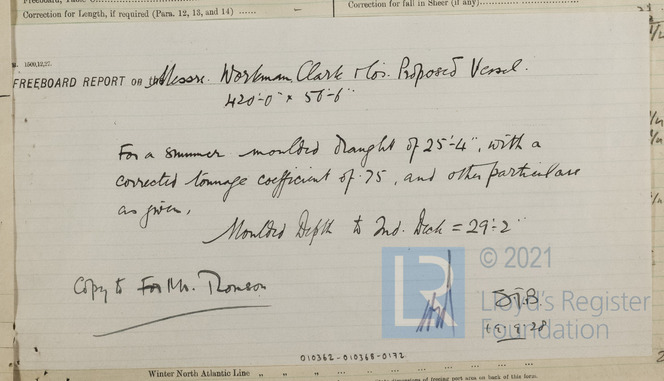 Freeboard, Table
Correction for Length, if required (Para. 12, 13, and 14)
Correction for fall in Sheer (if any)
1500,12,27.
FREEBOARD REPORT ON the Messrs. Workman Clark & Co's. Proposed Vessel.
420'-0" × 56'-6"
For a summer moulded draught of 25'-4", with a
corrected tonnage coefficient of .75, and other particulars
as given,
Moulded Depth to 2nd. Deck = 29'-2"
© 2021
LR
Lloyd's Register
Foundation
Copy to Mr. Thomson
S.J.B
.9.28
010362-010368-0172
Winter North Atlantic Line
dimensions of freeing port area on back of this form.